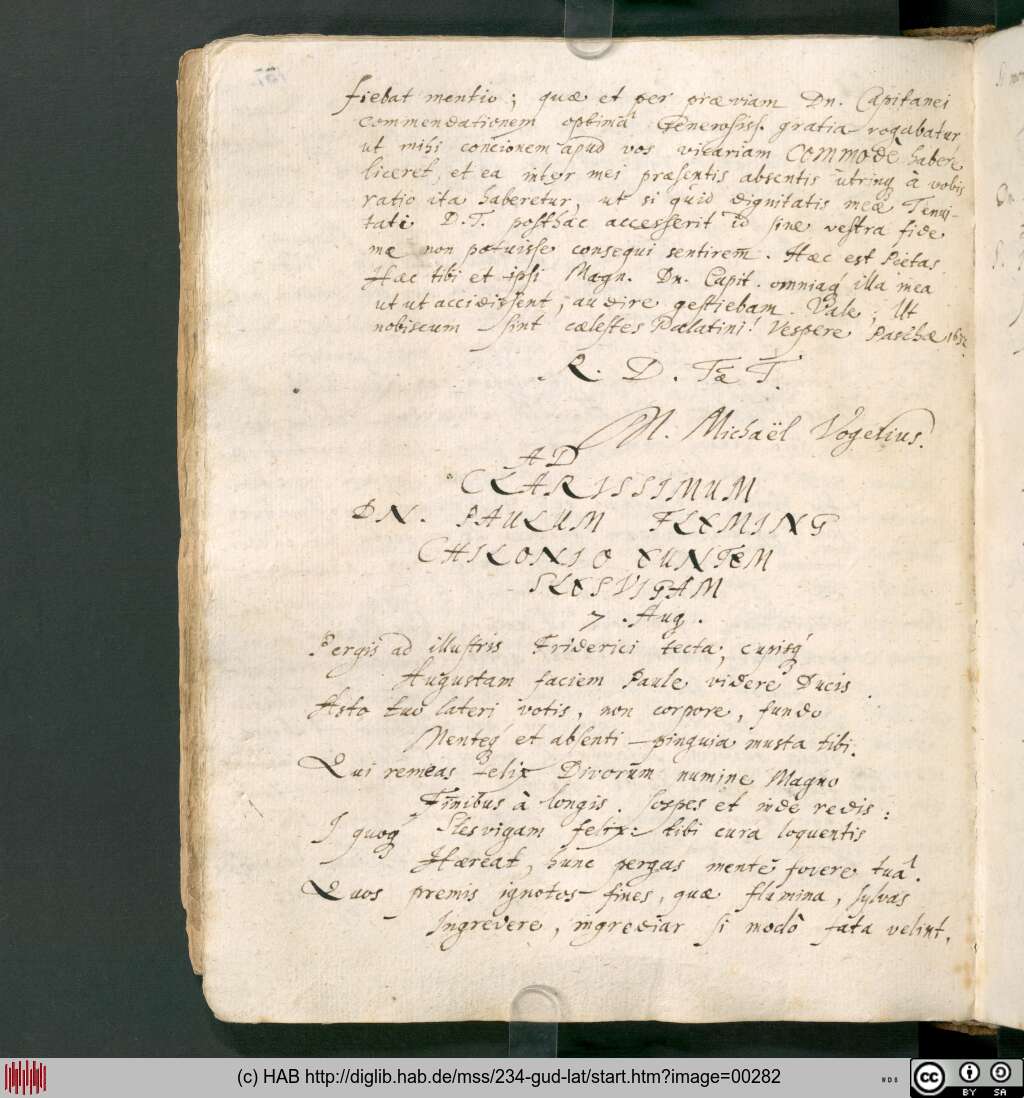 fiebat mentio; quæ et per præviam Dn. Capitanei
commendationem optimâ Generosiss. gratia rogabatur
ut mihi concionem apud vos vicariam COMMODÈ habere
liceret, et ea inter mei præsentis absentis utrinq à vobis
ratio ita haberetur, ut si quid dignitatis meæ Tenui-
tati D.T. posthac accesserit id sine vestra fide
me non potuisse consequi sentirem. Hæc est Pietas
Hæc tibi et ipsi Magn. Dn. Capit. omniaq illa mea
ut ut accidissent, audire gestiebam. Vale, Ut
nobiscum sint cælestes Palatini! Vespere Paschæ
R. D. Tæ T.
M. Michaël Vogelius.
AD
CLARISSIMUM
DN. PAULUM FLEMING
CHILONIO EUNTEM
SLESVIGAM
7. Aug.
Pergis ad illustris Friderici tecta, cupisq
Augustam faciem Paule videre Ducis.
Asto tuo lateri votis, non corpore, fundo
Menteq et absenti pinguia musta tibi.
Qui remeas felix Divorum numine Magno
Finibus à longis. sospes et inde redis:
I quoq Slesvigam felix: tibi cura loquentis
Hæreat, hunc pergas mente fovere tuâ.
Quos premis ignotos fines, quæ flumina, sylvas
Ingredere, ingrediar si modò fata velint.
(c) HAB http://diglib.hab.de/mss/234-gud-lat/start.htm?image=00282
cc BY SA